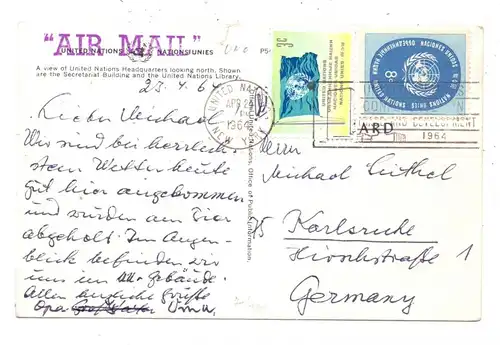 "AIR MAIL"
UNITED NATIONS NATIONS UNIES
A view of United Nations Headquarters looking north. Shown
are the Secretariat Building and the United Nations Library.
23.4.64
UNO
P5-
3c
8c
UNITED NATIONS
NEW YORK
APR 24
196
UNITED NATIONS
NATIONS UNIES
AND DEVELOPMENT
1964
ARD
Office of Public Information.
Lieber Michael
Wir sind bei herrlich-
stem Wetter heute
gut hier angekommen
und wurden am Pier
abgeholt. Im Augen-
blick befinden wir
uns im UN. Gebäude.
Allen herzliche Grüße
Opa Oma.
Herrn
Michael
75 Karlsruhe
Hirschstrasse 1
Germany